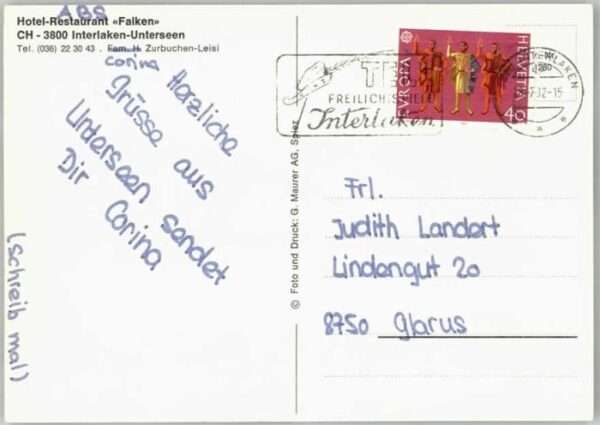 ABS
Hotel-Restaurant «Falken»
CH - 3800 Interlaken-Unterseen
Tel. (036) 22 30 43 . Fam. H. Zurbuchen-Leisi
Corina
Herzliche
Grüsse aus
Unterseen sendet
Dir Corina
(schreib mal)
© Foto und Druck: G. Maurer AG, Spiez
TELL
FREILICHTSPIELE
Interlaken
EUROPA
HELVETIA
40
INTERLAKEN
Frl.
Judith Landert
Lindengut 20
8750 Glarus